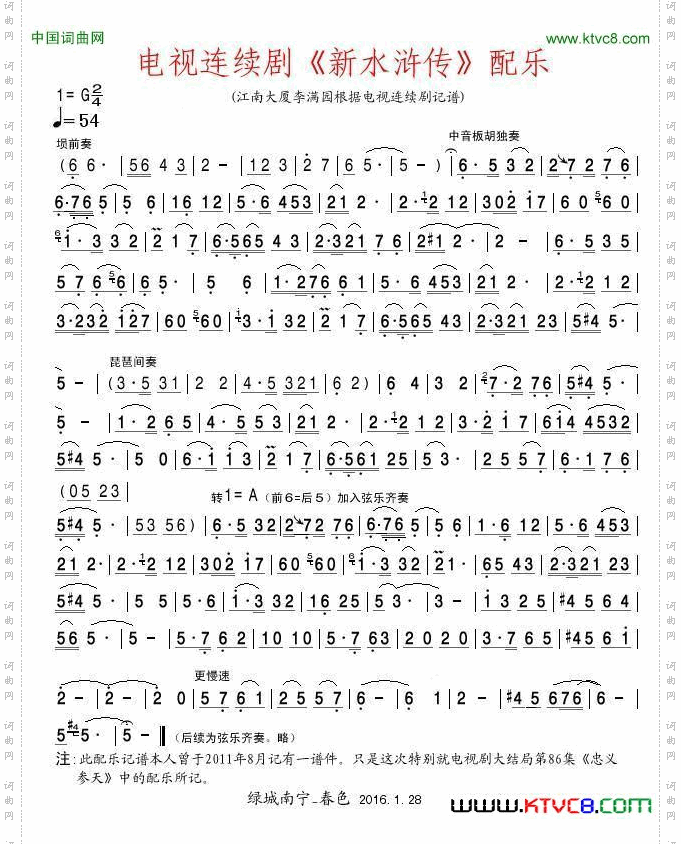 中国词曲网
www.ktvc8.com
电视连续剧《新水浒传》配乐
1= G 2/4
(江南大厦李满园根据电视连续剧记谱)
♩= 54
埙前奏
中音板胡独奏
(6 6· | 56 4 3 | 2 - | 12 3 | 2 7 | 6 5· | 5 - ) | 6· 5 3 2 | 2 7 2 7 6 |
6·76 5 | 5 6 | 16 12 | 5·6 453 | 21 2· | 2·2 12 | 302 17 | 60 60 |
1· 3 32 | 2 1 7 | 6·565 4 3 | 2·321 7 6 | 2#1 2· | 2 - | 6· 5 3 5 |
5 7 6 6 | 6 5· | 5 6 | 1·276 6 1 | 5·6 453 | 21 2· | 2·2 1 2 |
3·232 127 | 60 60 | 3·1 32 | 2 1 7 | 6·565 4 3 | 2·321 23 | 5#4 5· |
琵琶间奏
5 - | (3·5 31 | 2 2 | 4·5 321 | 6 2) | 6 4 3 2 | 7·2 76 | 5#4 5· |
5 - | 1·2 6 5 | 4·5 53 | 21 2· | 2·2 12 | 3·2 17 | 614 4532 |
5#4 5· | 5 0 | 6·1 13 | 2 1 7 | 6·561 25 | 5·3 23 | 2 5 5 7 | 6·1 7 6 |
(05 23
转1= A (前6=后5) 加入弦乐齐奏
5#4 5· | 53 56) | 6·5 32 | 2 72 76 | 6·76 5 | 5 6 | 1·6 12 | 5·6 453 |
21 2· | 2·2 12 | 302 17 | 60 60 | 1·3 32 | 21· | 6 5 4 3 | 2·321 23 |
5#4 5· | 5· 5 6 | 1·3 32 | 2 1 7 | 6 5 1 6 2 | 53· | 3 - | #4 5 6 4 |
56 5· | 5 - | 5·7 6 2 | 10 10 | 5·7 63 | 20 20 | 3·2 7 6 | #45 6 1 |
更慢速
2 - | 2 - | 2 0 | 5 7 6 1 | 2 5 5 7 | 6 - | 6 1 | 2 - | #4 5 676 | 6 - |
5 5· | 5 - ‖ (后续为弦乐齐奏。略)
注: 此配乐记谱本人曾于2011年8月记有一谱件。只是这次特别就电视剧大结局第86集《忠义
参天》中的配乐所记。
绿城南宁-春色 2016. 1. 28
www.KTVC8.com